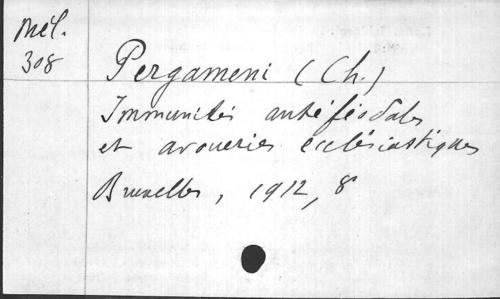 Mél.
308
Pergameni (Ch.)
Immunités antéféodales
et avoueries ecclésiastiques
Bruxelles, 1912, 8